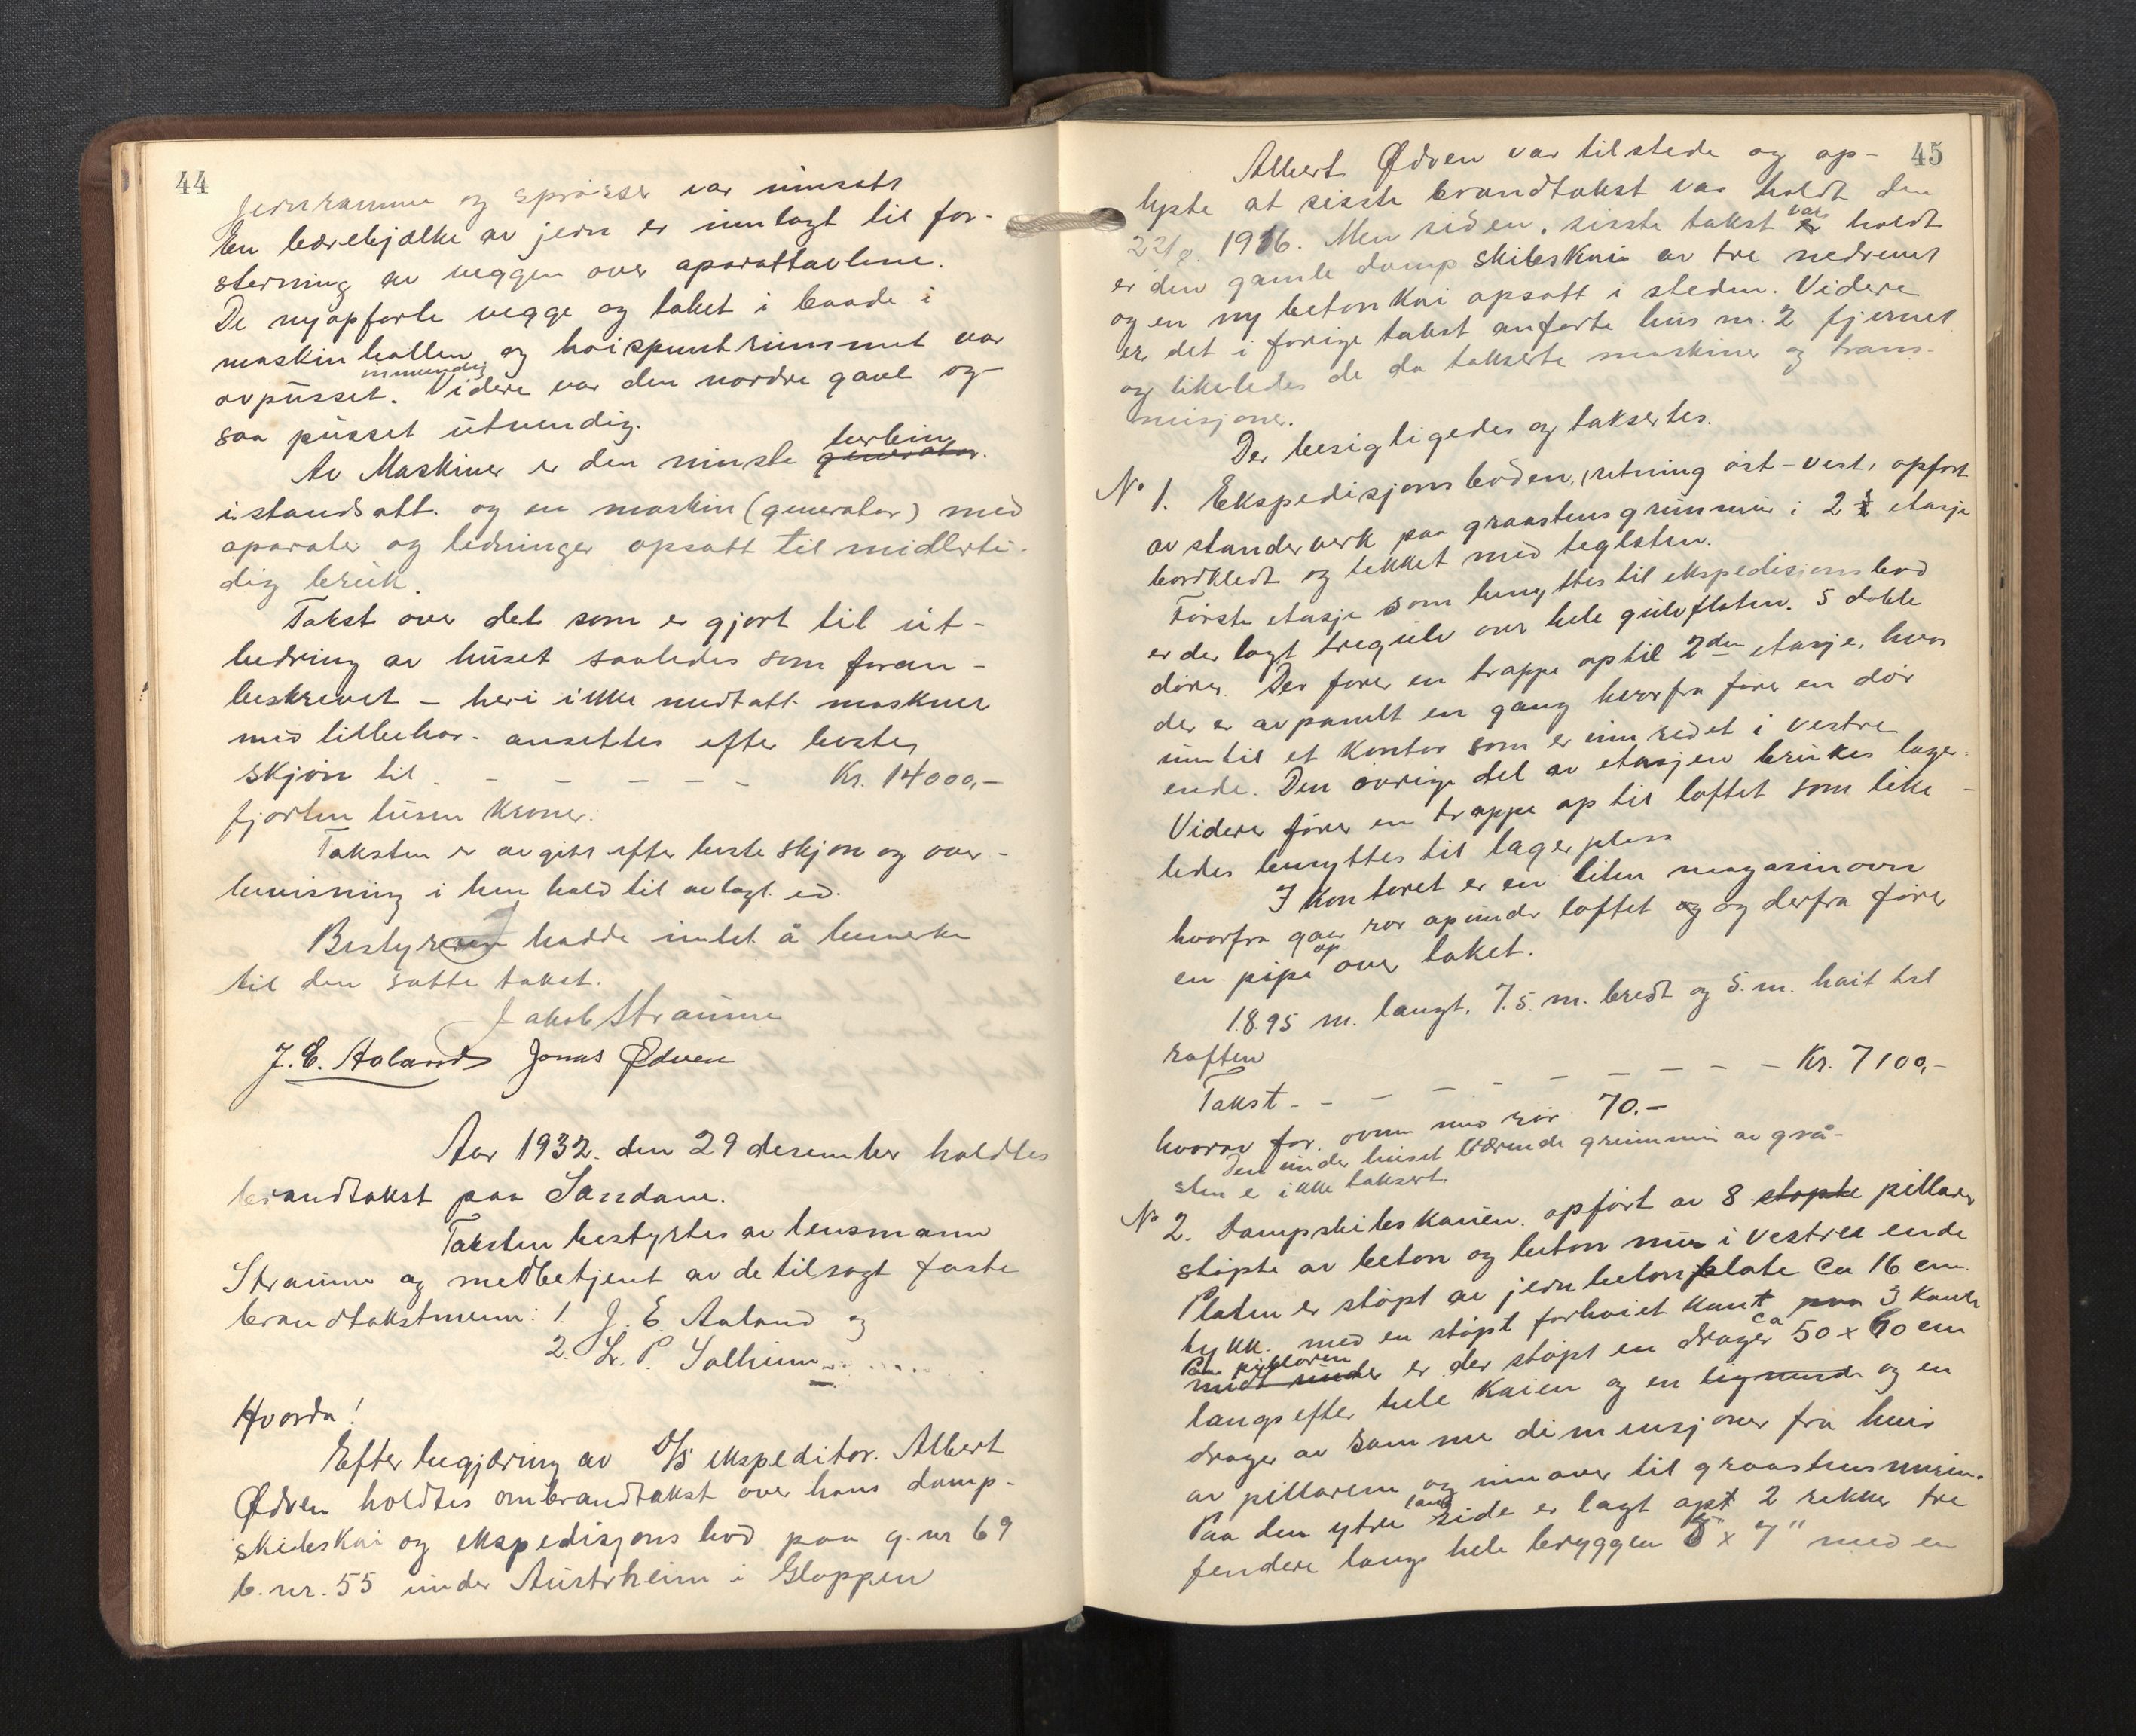 44
jernramme og sprosser var innsatt
En bærebjælke av jern er innlagt til for-
sterning av veggen over aparattavlene.
De nyopførte vegge og taket i baade i
maskinhallen og høispentrummet var
innvendig
avpusset. Videre var den nordre gavl og-
saa pusset utvendig.
turbin
Av Maskiner er den minste generator.
istandsatt. og en maskin (generator) med
aparater og ledninger opsatt til midlerti-
dig bruk.
Takst over det som er gjort til ut-
bedring av huset saaledes som foran-
beskrevet - heri ikke medtatt maskner
med tilbehør - ansettes efter beste
skjøn til - - - - - - Kr. 14000,-
fjorten tusen kroner.
Taksten er avgitt efter beste skjøn og over-
bevisning i henhold til avlagt ed.
Bestyreren hadde intet å bemerke
til den satte takst.
Jakob Straume
J. E. Aaland Jonas Ødven
Aar 1932. den 29 desember holdtes
brandtakst paa Sandane.
Taksten bestyrtes av lensmann
Straume og medbetjent av de tilsagt faste
brandtakstmenn: 1. J. E. Aaland og
2. L. P. Solheim
Hvorda!
Efter begjæring av D/S ekspeditør. Albert
Ødven holdtes ombrandtakst over hans damp-
skibskai og ekspedisjons bod paa g. nr 69
b. nr. 55 under Austrheim i Gloppen
45
Albert Ødven var tilstede og op-
lyste at sisste brandtakst var holdt den
22/8. 1916. Men siden, sisste takst var holdt
er den gamle dampskibskai av tre nedrevet
og en ny betonkai opsatt i steden. Videre
er det i forige takst anførte hus nr. 2 fjernet
og likeledes de da takserte maskiner og trans-
misjoner.
Der besigtigedes og taksertes.
No 1. Ekspedisjonsboden, retning øst-vest, opført
av standerverk paa graastensgrunnmur i 2 ½ etasje
bordkledt og tekket med teglsten.
Første etasje som benyttes til ekspedisjonsbod
er der lagt tregulv over hele gulvflaten. 5 doble
dører. Der fører en trappe optil 2den etasje, hvor
der er avpanelt en gang hvorfra fører en dør
inntil et kontor som er innredet i vestre
ende. Den øvrige del av etasjen brukes lager.
Videre fører en trappe op til loftet som like-
ledes benyttes til lagerplass
I kontoret er en liten magasinovn
hvorfra gaar rør opunder loftet og og derfra fører
en pipe op over taket.
18.95 m. langt, 7.5. m. bredt og 5. m. høit til
raften
Takst - - - - - - - - - Kr. 7100,-
hvorav for ovnen med rør 70.-
Den under huset værende grunnmur av grå-
sten er ikke taksert.
No 2. Dampskibskaien. opført av 8 støpte pillarer
støpte av beton og beton mur i vestre ende
Platen er støpt av jernbetonplate ca 16 cm.
tykk. med en støpt forhøiet kant paa 3 kanter
Paa pillaren
midt under er der støpt en drager ca 50 x 60 cm
langs efter hele kaien og en lignende og en
drager av samme dimensjoner fra hver
av pillarene og innover til graastensmuren.
Paa den ytre lang side er lagt opt 2 rekker tre
fendere langs hele bryggen 8" x 7" med en